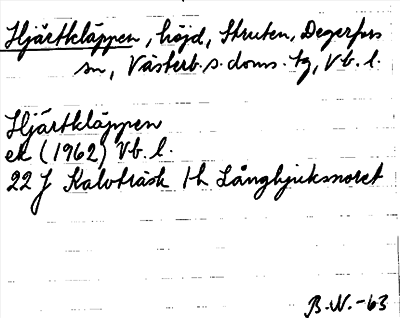 Hjärtkläppen, höjd, Struten, Degerfors
sn, Västerb. s. doms. tg, Vb. l.
Hjärtkläppen
ek (1962) Vb. l.
22 J Kalvträsk 1h Långhjuksnoret
B.N.-63